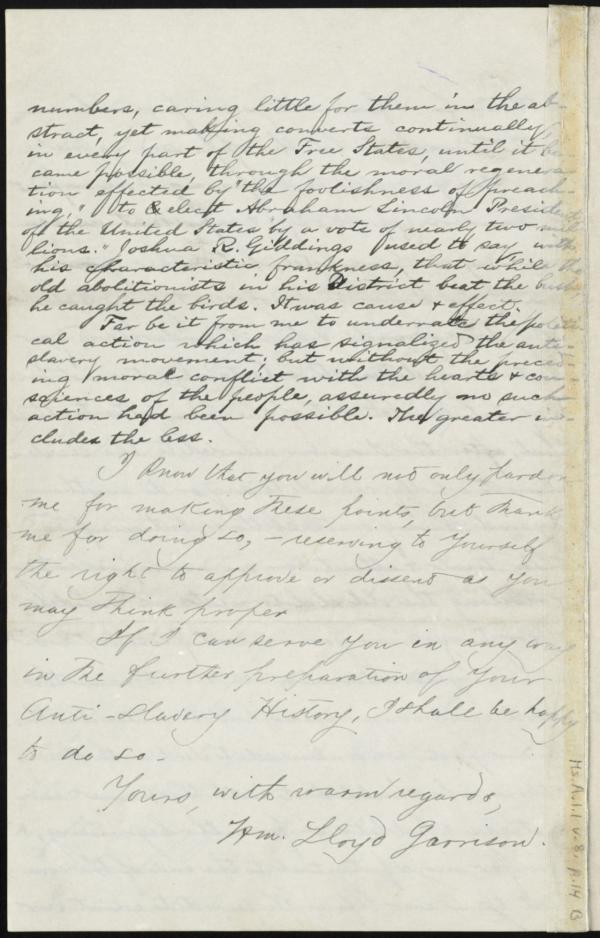 numbers, caring little for them in the ab-
stract, yet making converts continually,
in every part of the Free States, until it be-
came possible, through the moral regenera-
tion effected by "the foolishness of preach-
ing," to elect Abraham Lincoln President
of the United States by a vote of nearly two mil-
lions." Joshua R. Giddings used to say, with
his characteristic frankness, that while the
old abolitionists in his District beat the bush,
he caught the birds. It was cause & effect.
Far be it from me to underrate the politi-
cal action which has signalized the anti-
slavery movement; but without the preced-
ing moral conflict with the hearts & con-
sciences of the people, assuredly no such
action had been possible. The greater in-
cludes the less.
I know that you will not only pardon
me for making these points, but thank
me for doing so, - reserving to yourself
the right to approve or dissent as you
may think proper
If I can serve you in any way
in the further preparation of your
Anti-Slavery History, I shall be happy
to do so.
Yours, with warm regards,
Wm. Lloyd Garrison.
Ms.A.1.1 v.8, p.14 B